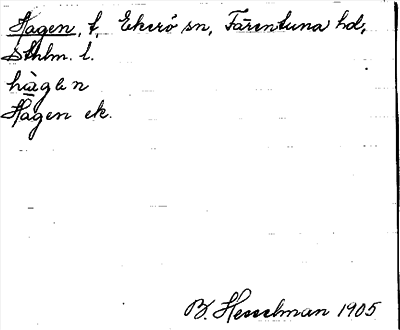 Hagen, t, Ekerö sn, Färentuna hd,
Sthlm. l.
hàgen
Hagen ek.
B. Hesselman 1905